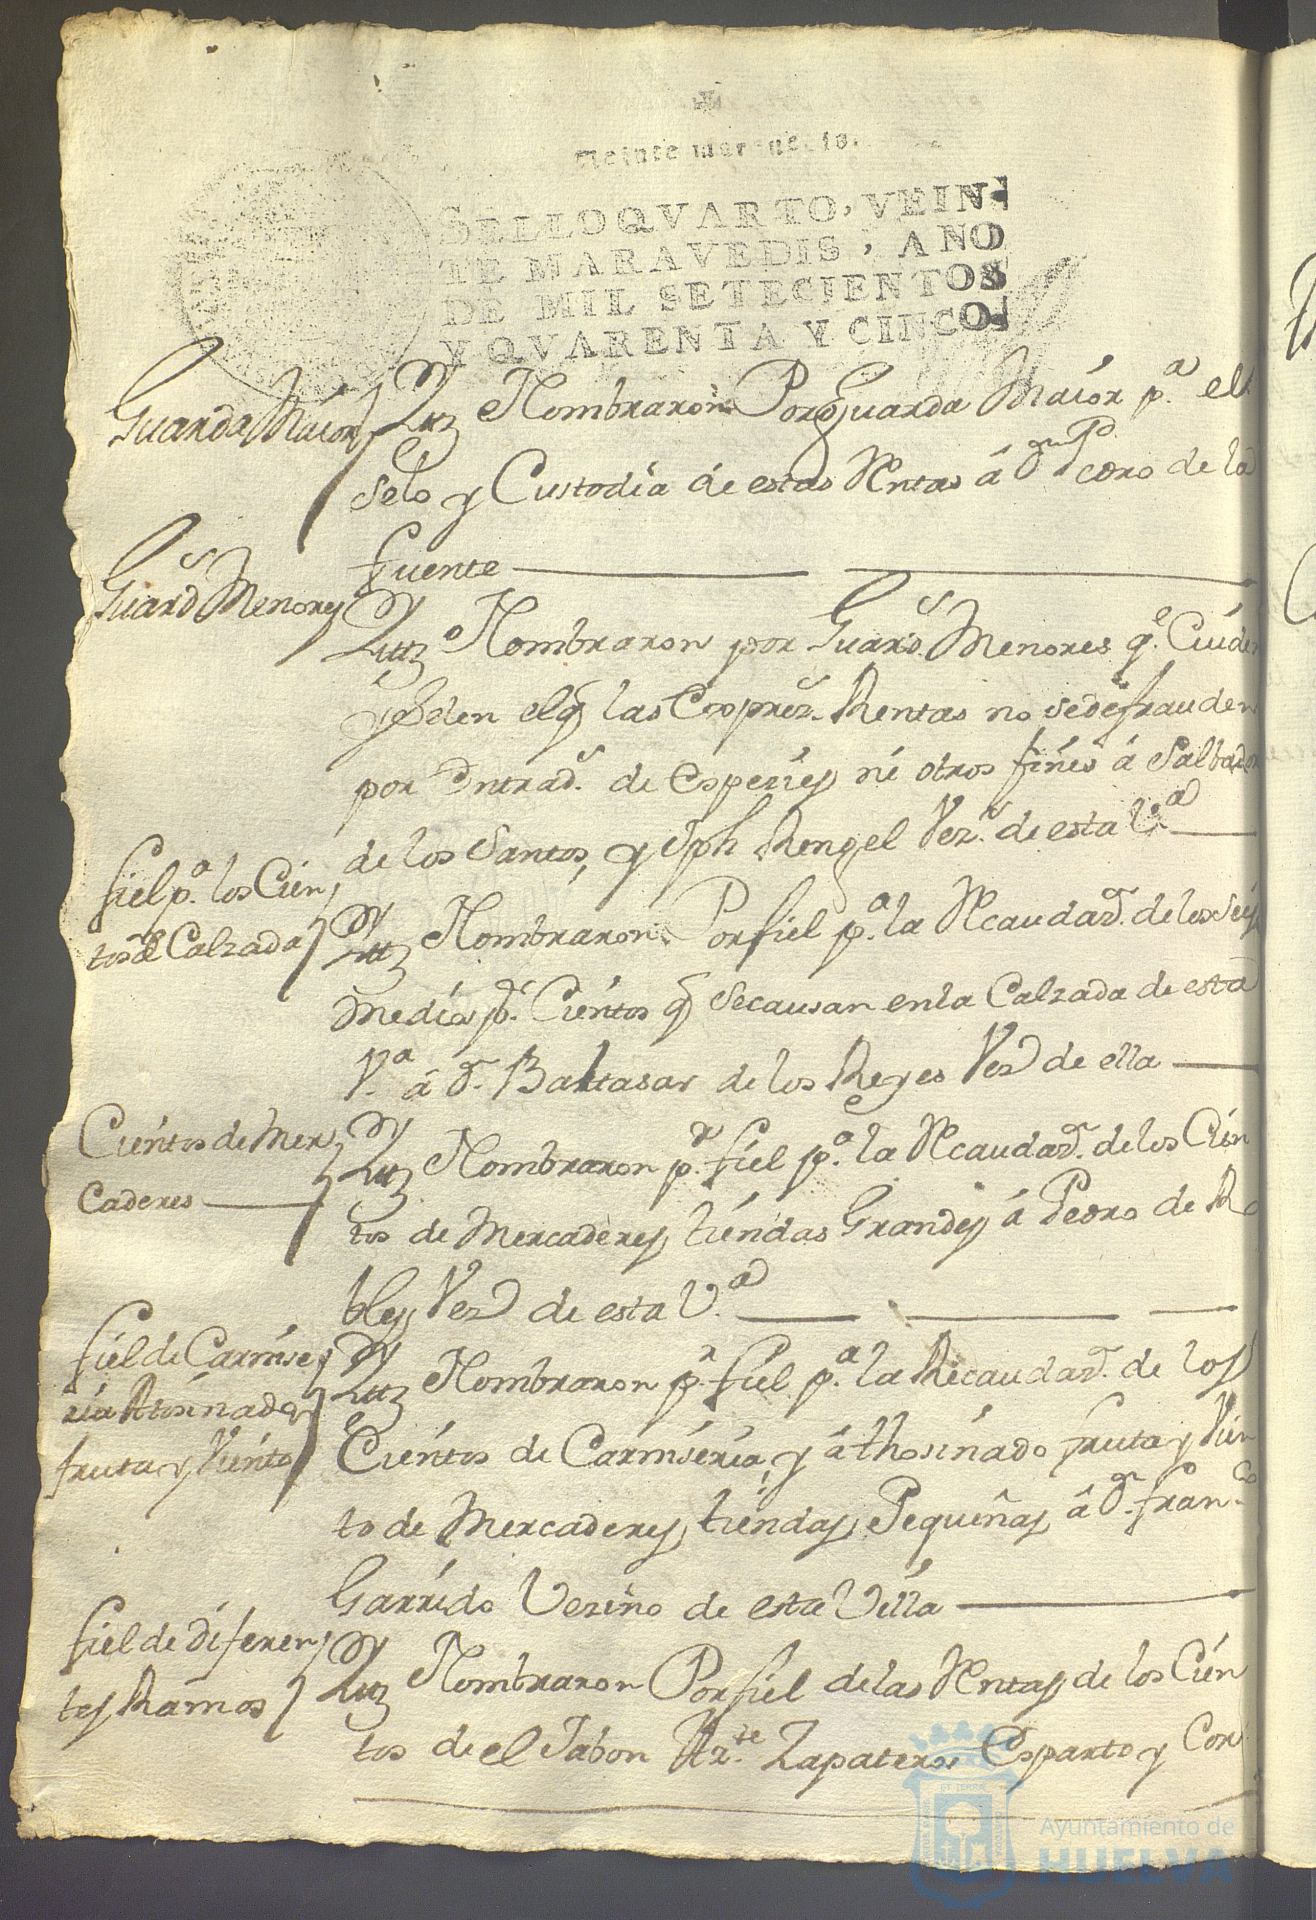 Veinte maravedis.
SELLO QVARTO, VEIN-
TE MARAVEDIS, AÑO
DE MIL SETECIENTOS
Y QVARENTA Y CINCO.
Guarda Maior
Nombraron Por Guarda Maior p.ª el
Selo y Custodia de estas Rentas â Dn Pedro de la
fuente
Guards Menores
Nombraron por Guards. Menores q.e Cuiden
y Selen el q las Expres.s Rentas no se defrauden
por Entrad.s de Especies ni otros fines â Salbador
de los Santos, y Jph Rengel Vez.s de esta V.ª
fiel p.ª los Cien
tos de Calzada
Nombraron Por fiel p.ª la Recaudaz.n de los Seis
Medios p.r Cientos q Se causan en la Calzada de esta
V.ª â D.n Baltasar de los Reyes Vez.o de ella
Cientos de Mer
caderes
Nombraron p.r fiel p.ª la Recaudaz.n de los Cien
tos de Mercaderes, tiendas Grandes â Pedro de Ro
bles Vez.o de esta V.ª
fiel de Carnise
ria Atosinado
fruta y Viento
Nombraron p.r fiel p.ª la Recaudaz.n de los
Cientos de Carniseria, y âthosinado fruta y Vien
to de Mercaderes, tiendas Pequeñas, â D.n fran.co
Garrido Vezino de esta Villa
fiel de diferen
tes Ramos
Nombraron Por fiel de las Rentas de los Cien
tos de el Jabon Az.te Zapateros Esparto y Cor
Ayuntamiento de
HUELVA